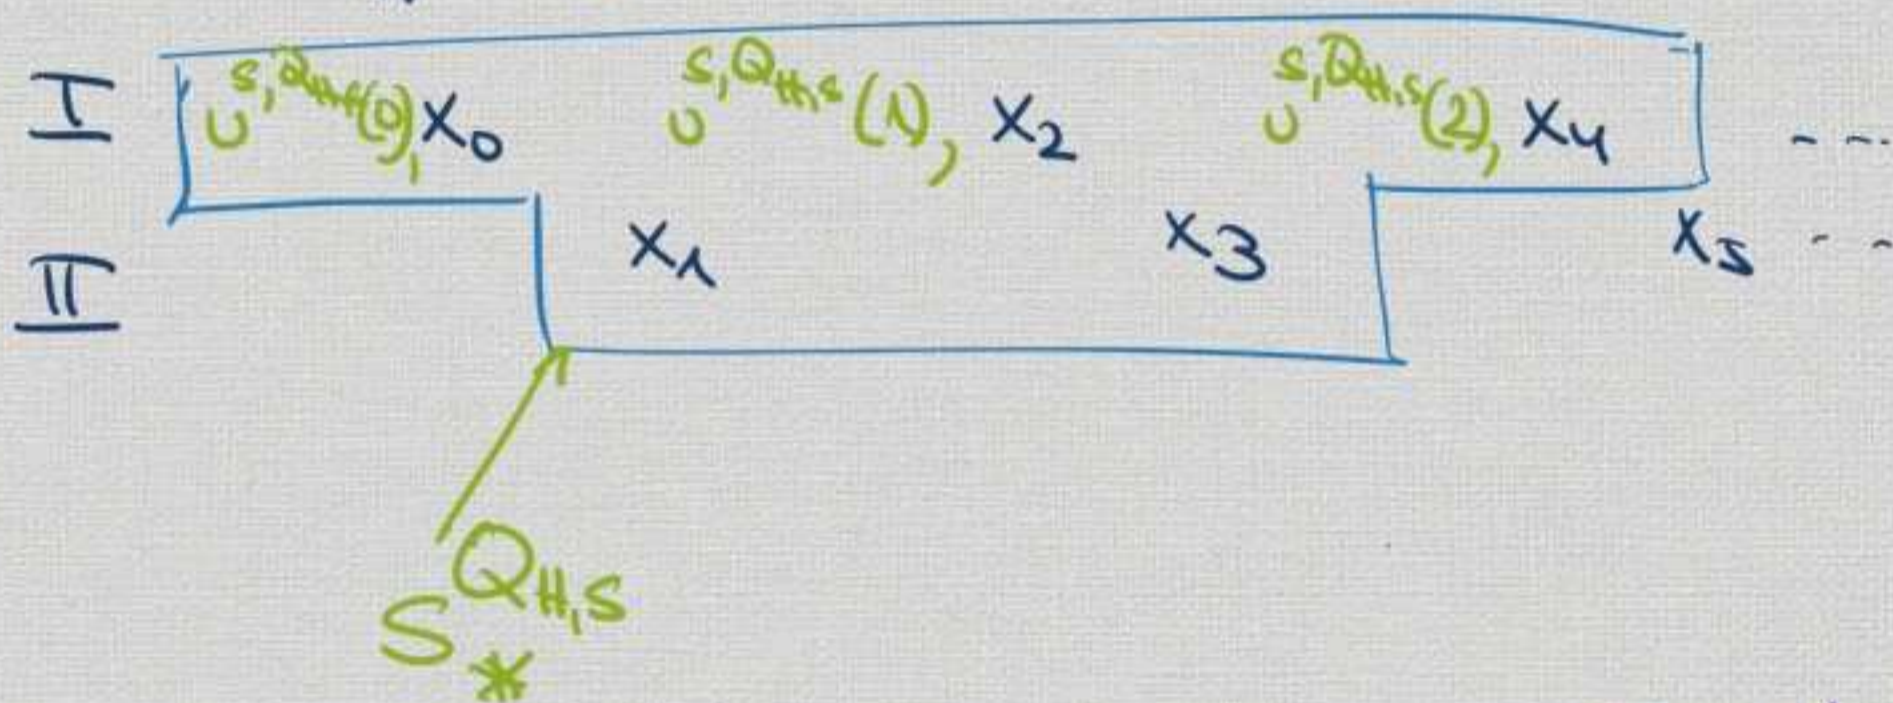 I υ^{S,Q_{H,S}(0)}, x₀ υ^{S,Q_{H,S}(1)}, x₂ υ^{S,Q_{H,S}(2)}, x₄ - - -
II x₁ x₃ x₅ - -
S_*^{Q_{H,S}}